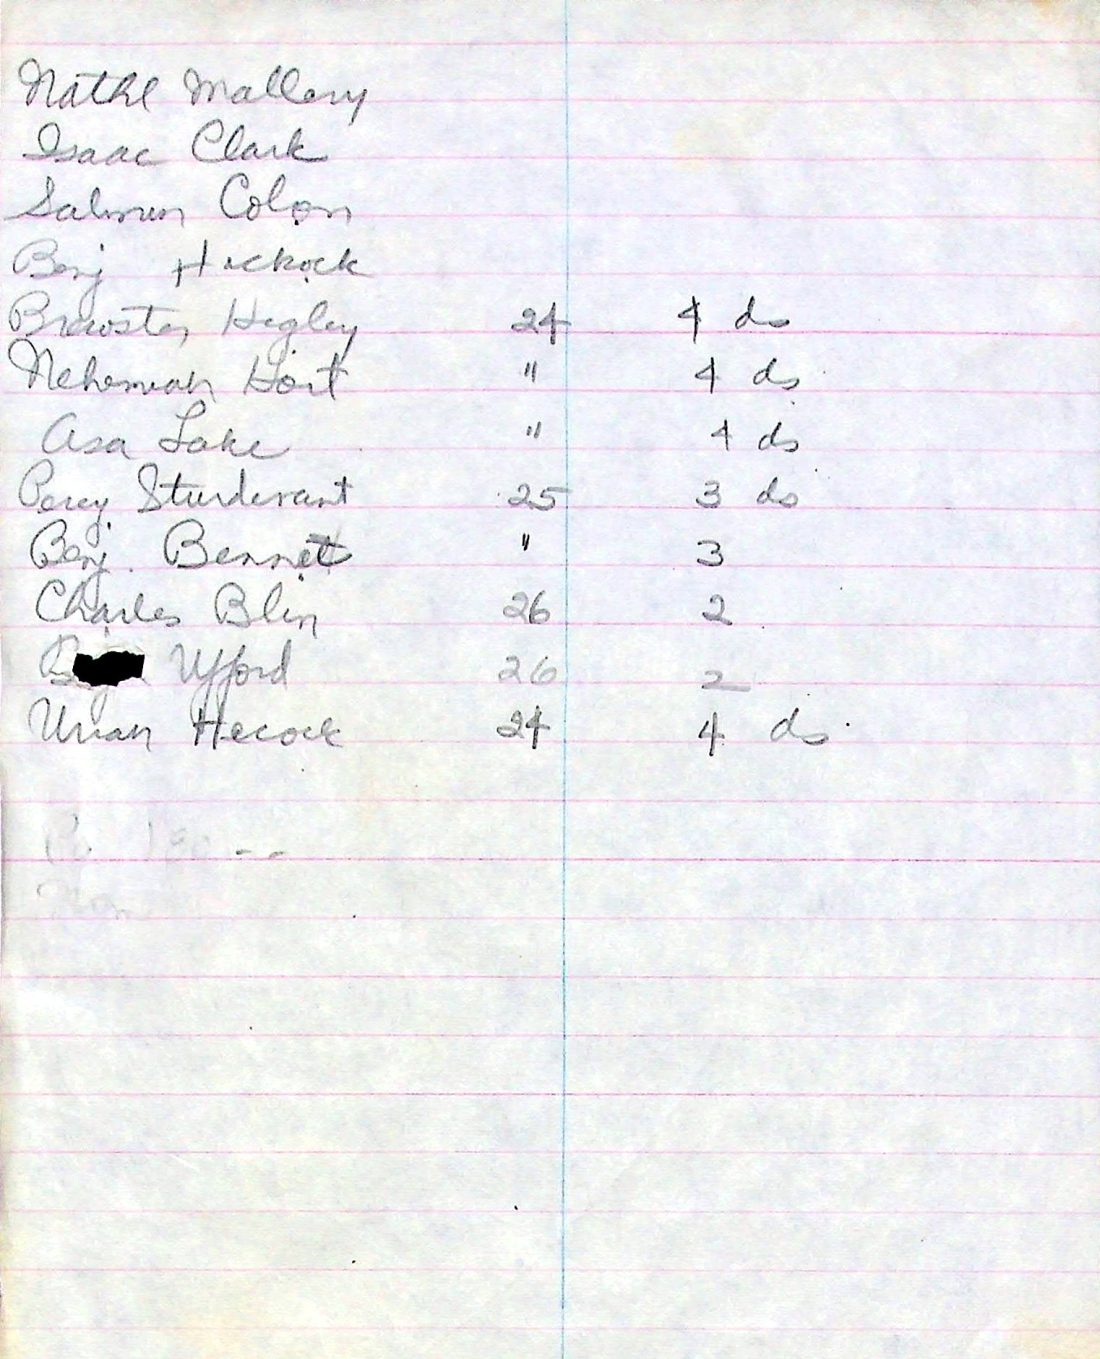 Nathl Mallory
Isaac Clark
Salmun Colon
Benj Hickock
Brewster Higley 24 4 ds
Nehemiah Hoit " 4 ds
Asa Lake " 4 ds
Percy Sturdevant 25 3 ds
Benj. Bennet " 3
Charles Blin 26 2
Ufford 26 2
Uriah Hecock 24 4 ds